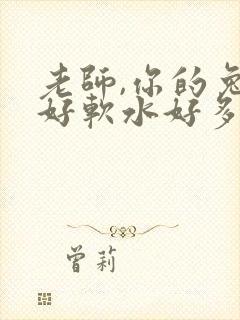 老師,你的兔
好軟水好多
曾莉